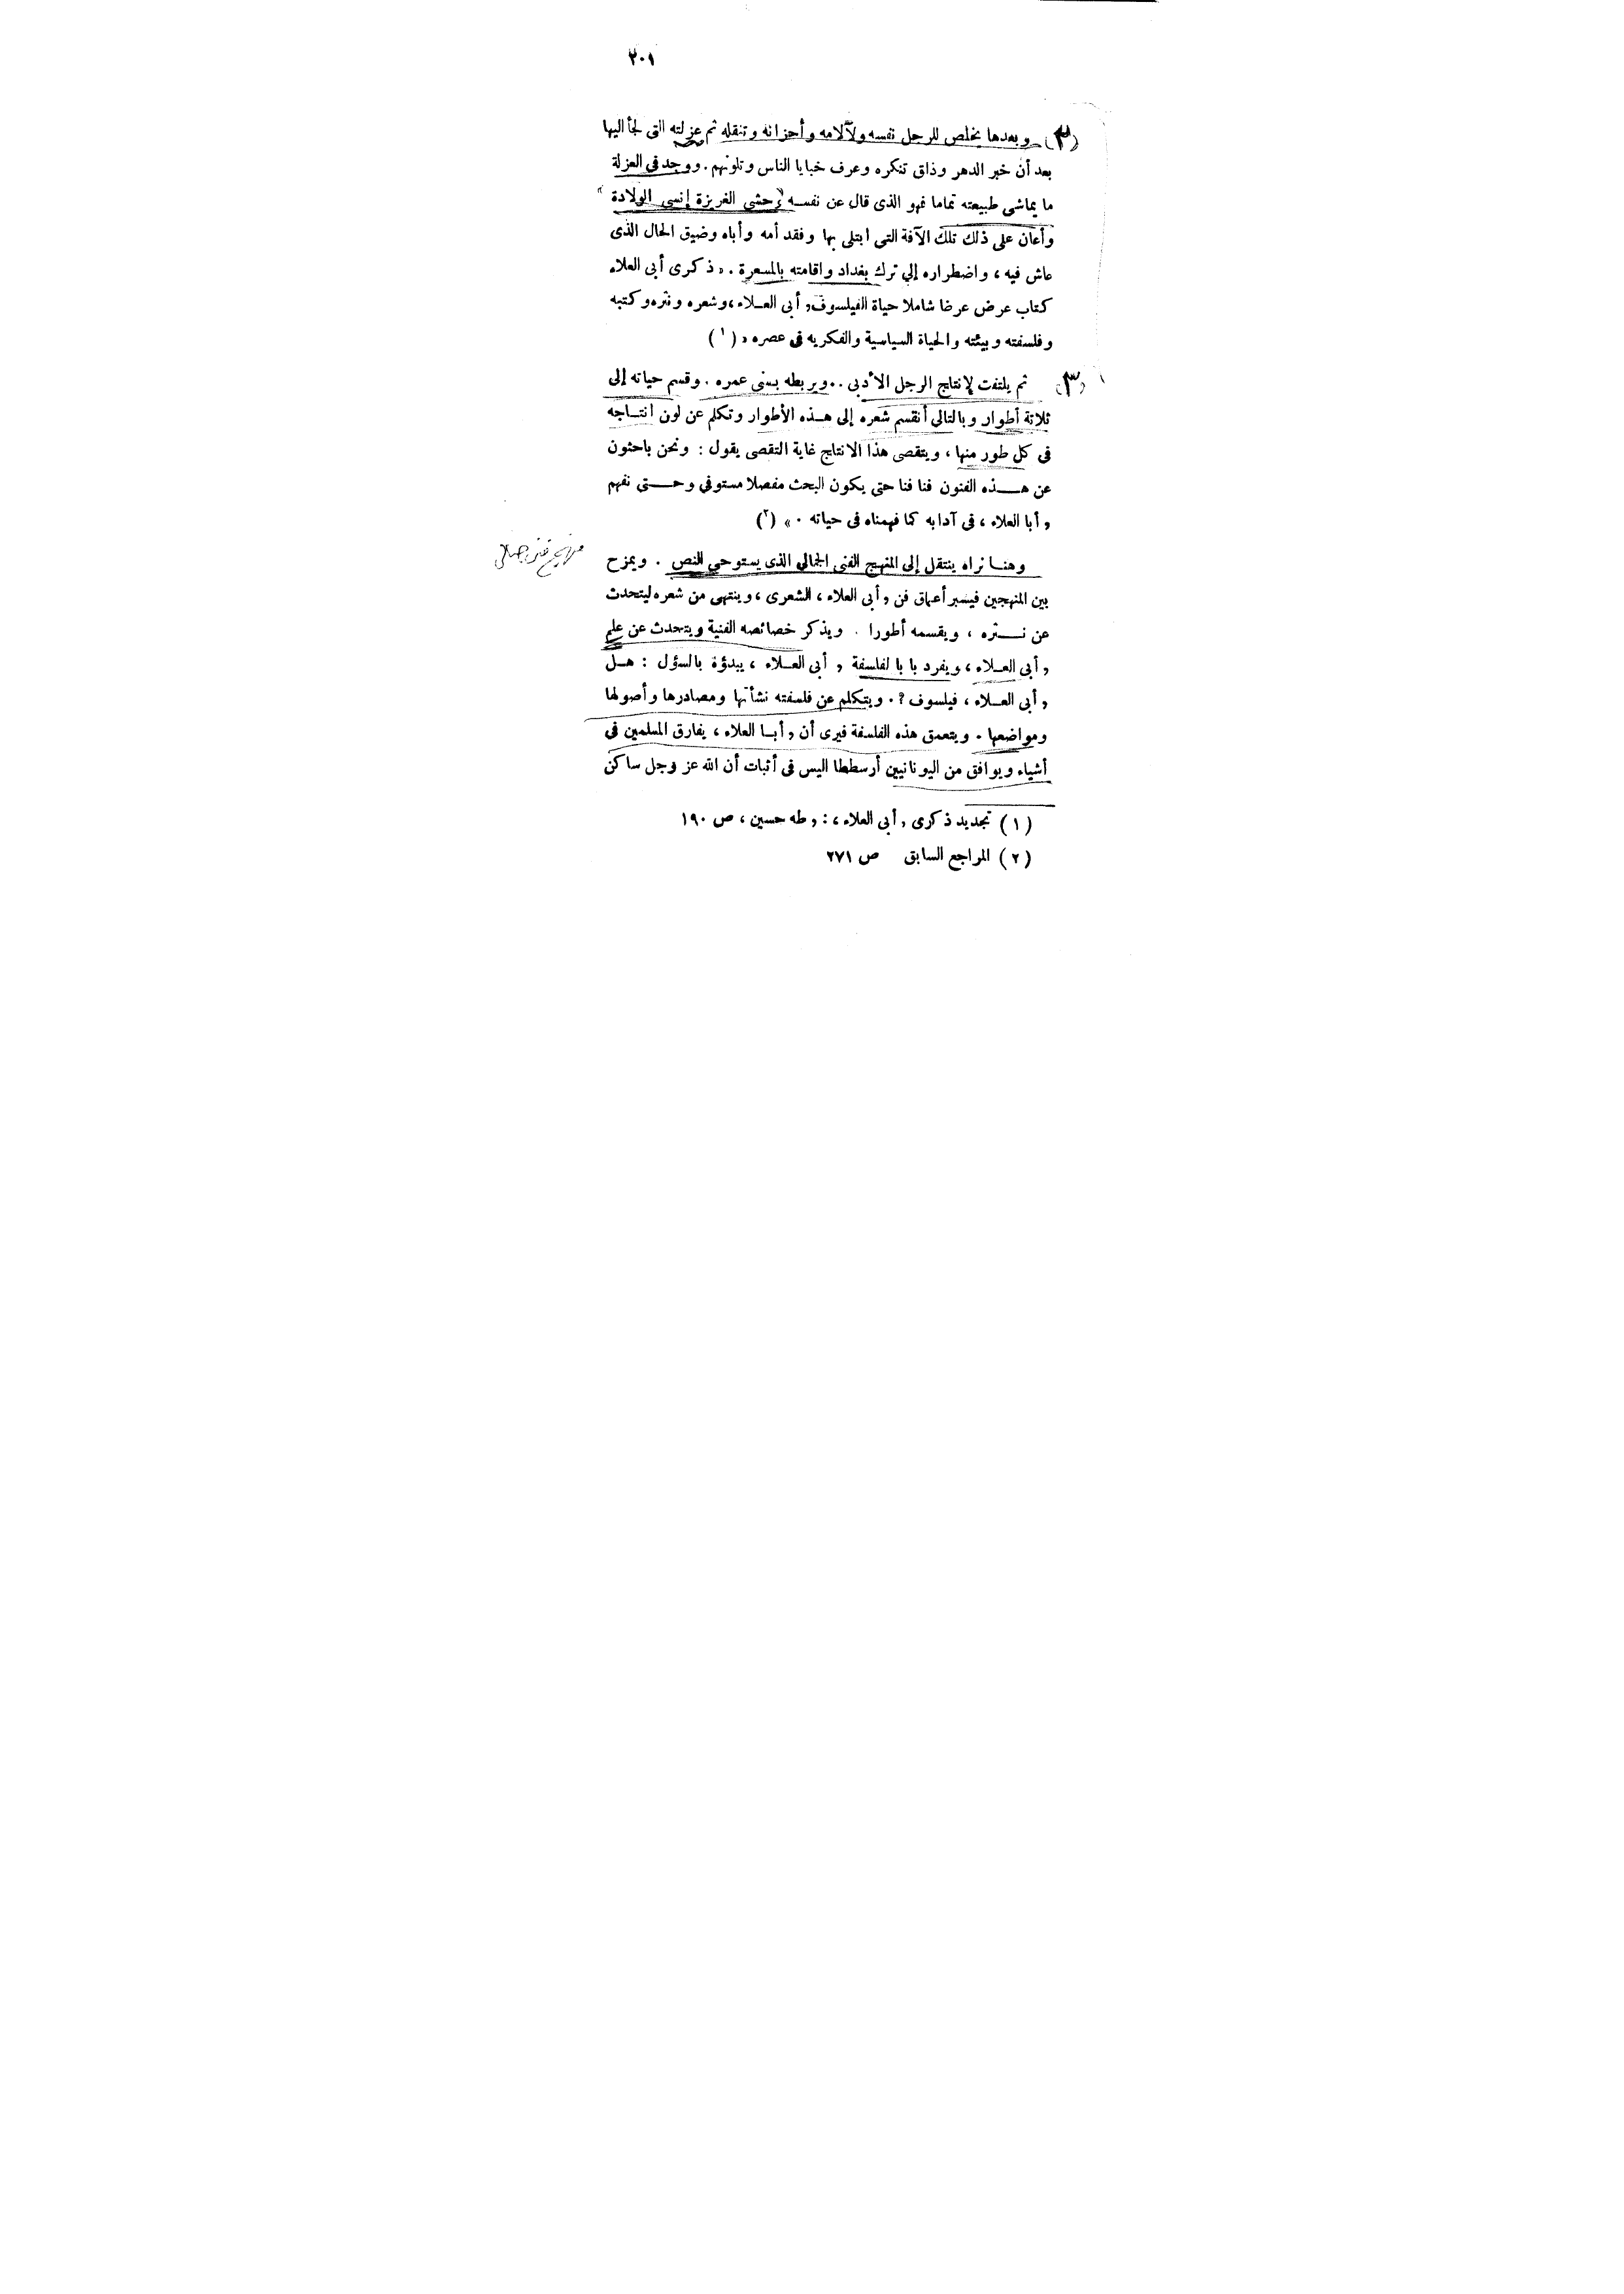 ٢٠١
(٢) وبعدها يخلص للرجل نفسه ولآلامه وأحزانه وتنقله ثم عزلته التى لجأ اليها
بعد أن خبر الدهر وذاق تنكره وعرف خبايا الناس وتلونهم . ووجد فى العزلة
ما يماشى طبيعته تماما فهو الذى قال عن نفسه « وحشى الغريزة إنسى الولادة »
وأعان على ذلك تلك الآفة التى ابتلى بها وفقد أمه وأباه وضيق الحال الذى
عاش فيه ، واضطراره إلى ترك بغداد واقامته بالمعرة . « ذكرى أبى العلاء
كتاب عرض عرضا شاملا حياة الفيلسوف « أبى العلاء » وشعره ونثره وكتبه
وفلسفته وبيئته والحياة السياسية والفكريه فى عصره » (١)
(٣) ثم يلتفت لإنتاج الرجل الأدبى . . ويربطه بسنى عمره . وقسم حياته إلى
ثلاثة أطوار وبالتالى أنقسم شعره إلى هذه الأطوار وتكلم عن لون انتاجه
فى كل طور منها ، ويتقصى هذا الانتاج غاية التقصى يقول : ونحن باحثون
عن هذه الفنون فنا فنا حتى يكون البحث مفصلا مستوفى وحتى نفهم
« أبا العلاء » فى آدابه كما فهمناه فى حياته . » (٢)
وهنا نراه ينتقل إلى المنهج الفنى الجمالى الذى يستوحى النص . ويمزح
منهج فنى جمالى
بين المنهجين فيسبر أعماق فن « أبى العلاء » الشعرى ، وينتهى من شعره ليتحدث
عن نثره ، ويقسمه أطورا . ويذكر خصائصه الفنية ويتحدث عن علم
« أبى العلاء » ويفرد بابا لفلسفة « أبى العلاء » يبدؤة بالسؤل : هل
« أبى العلاء » فيلسوف ؟ . ويتكلم عن فلسفته نشأتها ومصادرها وأصولها
ومواضعها . ويتعمق هذه الفلسفة فيرى أن « أبا العلاء » يفارق المسلمين فى
أشياء ويوافق من اليونانيين أرسططا اليس فى أثبات أن الله عز وجل ساكن
(١) تجديد ذكرى « أبى العلاء » : « طه حسين » ص ١٩٠
(٢) المراجع السابق ص ٢٧١